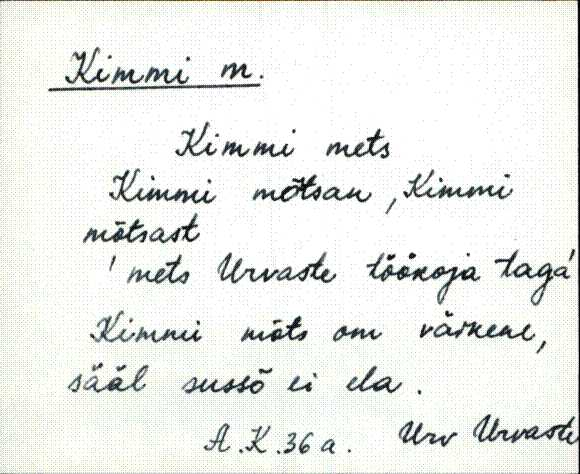 Kimmi m.
Kimmi mets
Kimmi mõtsan, Kimmi
mõtsast
'mets Urvaste töökoja taga'
Kimmi mõts om väikene,
sääl sussõ ei ela.
A.K. 36 a. Urv Urvaste